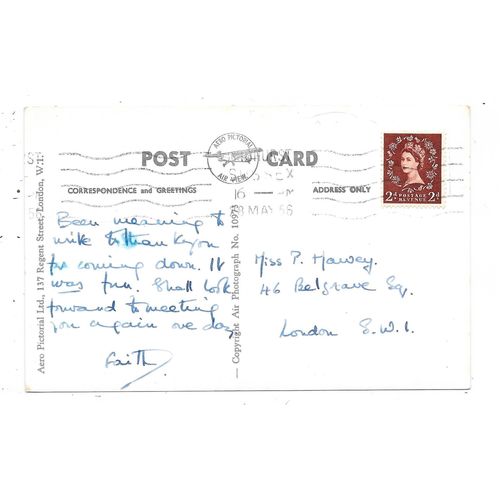 AERO PICTORIAL
AIR VIEW
POST CARD
CORRESPONDENCE and GREETINGS
ADDRESS ONLY
8 MAY 56
2d POSTAGE REVENUE 2d
Been meaning to
write to thank you
for coming down. It
was fun. Shall look
forward to meeting
you again one day,
Faith
Miss P.
46 Belgrave Sq.
London S.W.1.
Aero Pictorial Ltd., 137 Regent Street, London, W.1.
Copyright Air Photograph No. 10973